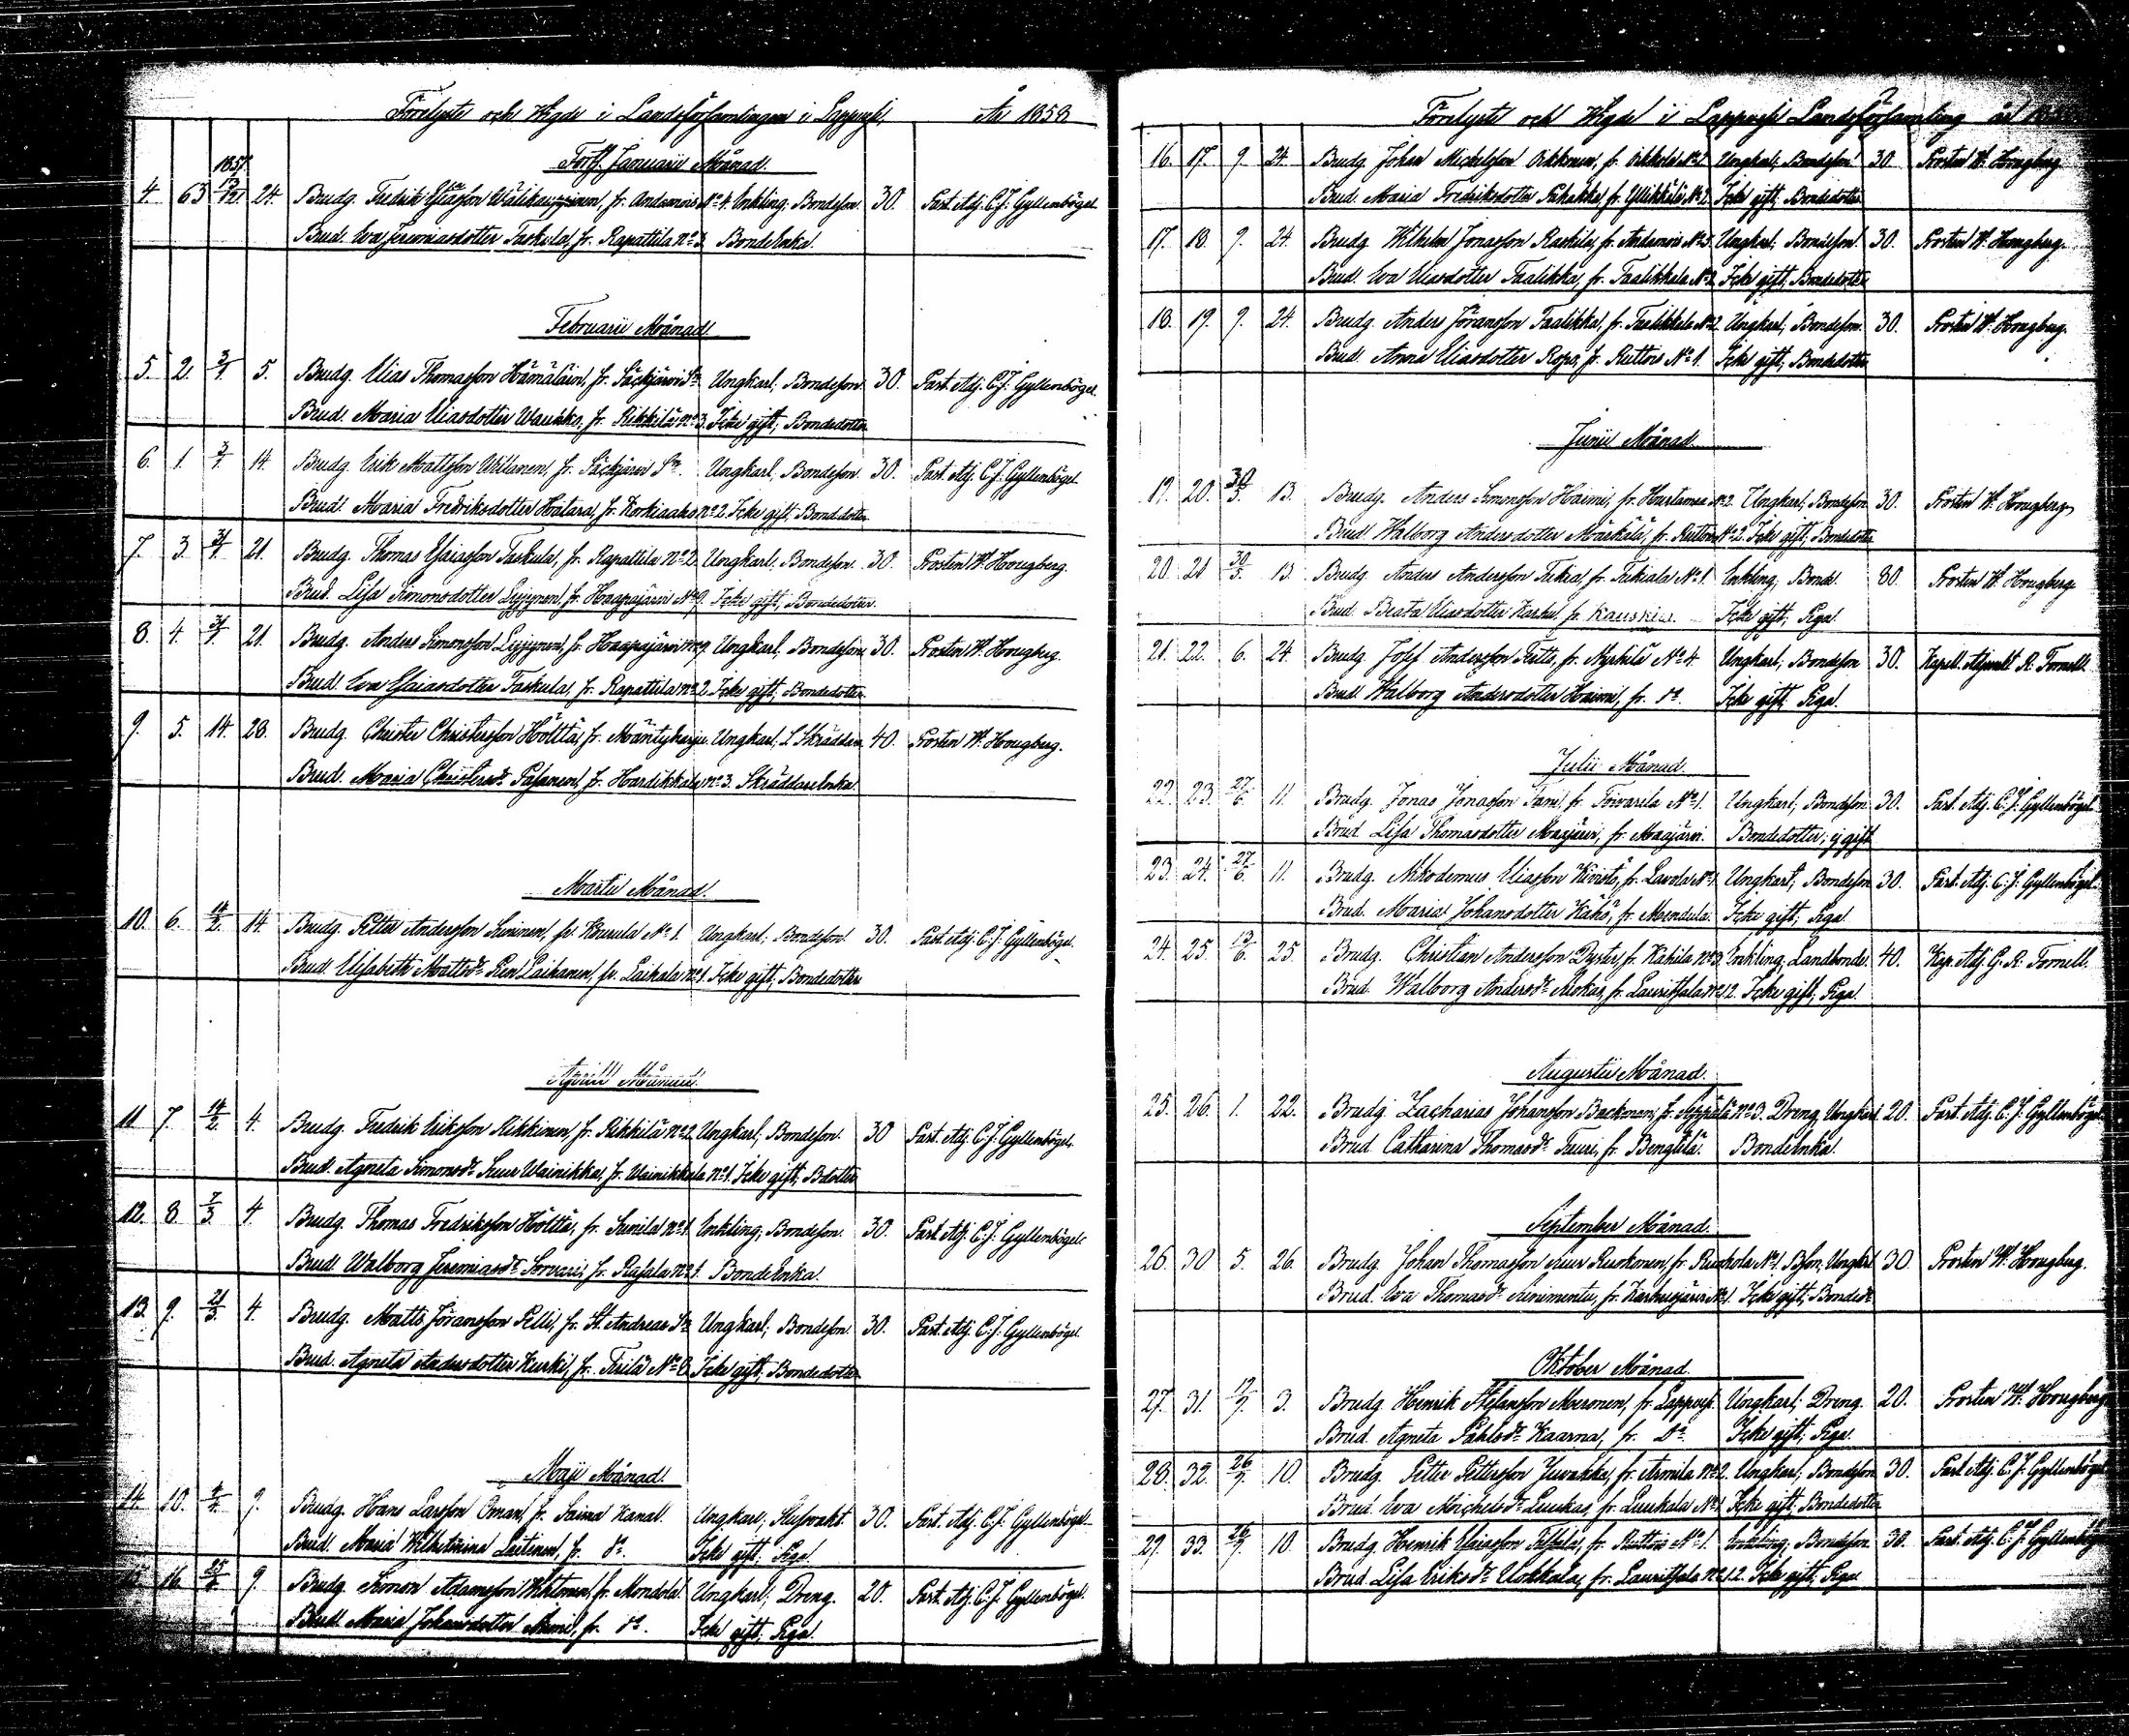 Förelyste och Wigde i Landsförsamlingen i Lappvesi, År 1858
Forts. Januarii Månad.
1857.
4. 63 13/12 24. Brudg. Fredrik Esaiasson Wälikauppinen, fr. Andamois No 4. Enkling; Bondeson. 30. Past. Adj. C. J. Gyllenbögel
Brud. Eva Jeremiasdotter Taskula, fr. Rapattila No 3. BondeEnka.
Februarii Månad.
5. 2. 3/1 5. Brudg. Elias Thomasson Hämäläin, fr. Säckjärvi Sn Ungkarl; Bondeson. 30. Past. Adj. C. J. Gyllenbögel.
Brud. Maria Eliasdotter Wauhko, fr. Rikkilä No 3. Icke gift; Bondedotter
6. 1. 3/1 14. Brudg. Erik Mattsson Willanen, fr. Säckjärvi Sn Ungkarl, Bondeson. 30. Past. Adj. C. J. Gyllenbögel
Brud. Maria Fredriksdotter Hatara, fr. Korkiaaho No 2. Icke gift, Bondedotter
7. 3. 31/1 21. Brudg. Thomas Esaiasson Taskula, fr. Rapattila No 2. Ungkarl; Bondeson. 30. Prosten W. Hougberg.
Brud. Lisa Simonsdotter Lyijynen, fr. Haapajärvi No 9. Icke gift; Bondedotter.
8. 4. 31/1 21. Brudg. Anders Simonsson Lyijynen, fr. Haapajärvi No 9. Ungkarl, Bondeson 30. Prosten W. Hougberg.
Brud. Eva Esaiasdotter Taskula, fr. Rapattila No 2. Icke gift; Bondedotter
9. 5. 14. 28. Brudg. Christer Christersson Hölttä, fr. Mäntyharju. Ungkarl, S. Skräddare 40. Prosten W. Hougberg.
Brud. Maria Christersdr Pesanen, fr. Hardikkala No 3. SkräddareEnka.
Martii Månad.
10. 6. 14/2 14. Brudg. Petter Andersson Sininen, fr. No 1. Ungkarl; Bondeson. 30. Past. Adj. C. J. Gyllenbögel.
Brud. Elisabeth Mattsdr Pien Laihanen, fr. Laihala No 1. Icke gift; Bondedotter
Aprill Månad.
11. 7. 14/2 4. Brudg. Fredrik Eriksson Rikkinen, fr. Rikkilä No 2. Ungkarl; Bondeson. 30 Past. Adj. C. J. Gyllenbögel.
Brud. Agneta Simonsdr Suur Wainikka, fr. Wainikkala No 1. Icke gift; Bdotter
12. 8. 7/3 4. Brudg. Thomas Fredriksson Hölttä, fr. Sunila No 1. Enkling; Bondeson. 30. Past. Adj. C. J. Gyllenbögel
Brud. Walborg Jeremiasdr Sorvari, fr. Rasala No 1. BondeEnka.
13. 9. 21/3 4. Brudg. Matts Jöransson Pelli, fr. St. Andreæ Sn Ungkarl; Bondeson. 30. Past. Adj. C. J. Gyllenbögel.
Brud. Agneta Andersdotter Kurki, fr. Tirilä No 8. Icke gift; Bondedotter
Maji Månad.
14. 10. 4/4 9. Brudg. Hans Larsson Öman, fr. Saima Kanal. Ungkarl; Slussvakt. 30. Past. Adj. C. J. Gyllenbögel
Brud. Maria Wilhelmina Laitinen, fr. do. Icke gift; Piga.
15. 16. 25/4 9. Brudg. Simon Adamsson fr. Mondola. Ungkarl; Dreng. 20. Past. Adj. C. J. Gyllenbögel.
Brud. Maria Johansdotter fr. do. Icke gift; Piga.
2
Förelyste och Wigde i Lappvesi Landsförsamling år
16. 17. 9. 24. Brudg. Johan Michelsson Oikkonen, fr. Oikkola No 1 Ungkarl; Bondeson. 30. Prosten W. Hougberg
Brud. Maria Fredriksdotter Puhakka, fr. Ylikkälä No 2. Icke gift; Bondedotter
17. 18. 9. 24. Brudg. Wilhelm Jonasson Raskila, fr. Andamois No 5. Ungkarl; Bondeson. 30. Prosten W. Hougberg.
Brud. Eva Eliasdotter Taalikka, fr. Taalikkala No 2. Icke gift; Bondedotter
18. 19. 9. 24. Brudg. Anders Jöransson Taalikka, fr. Taalikkala No 2. Ungkarl; Bondeson. 30. Prosten W. Hougberg.
Brud. Anna Eliasdotter Ropo, fr. Ruttois No 1. Icke gift; Bondedotter
Junii Månad.
19. 20. 30/5. 13. Brudg. Anders Simonsson Haimi, fr. Hurtanmaa No 2. Ungkarl; Bondeson 30. Prosten W. Hougberg
Brud. Walborg Andersdotter Märkälä, fr. Ruttois No 2. Icke gift; Bondedotter
20. 21 30/5. 13. Brudg. Anders Andersson Tukia, fr. Tukiala No 1. Enkling; Bonde. 30. Prosten W. Hougberg
Brud. Beata Eliasdotter Karhu, fr. Kauskila. Icke gift; Piga.
21. 22. 6. 24. Brudg. Josef Andersson Tetts, fr. Nyrhilä No 4. Ungkarl; Bondeson 30. Kapell. Adjunkt R. Fornell.
Brud. Walborg Andersdotter Haimi, fr. do. Icke gift; Piga.
Julii Månad.
22. 23. 27/6. 11. Brudg. Jonas Jonasson Tani, fr. Toivarila No 1. Ungkarl; Bondeson. 30. Past. Adj. C. J. Gyllenbögel
Brud. Lisa Thomasdotter Maajärvi, fr. Maajärvi. Bondedotter; ej gift
23. 24. 27/6. 11. Brudg. Nikodemus Eliasson Kivistö, fr. Lavola No 1. Ungkarl; Bondeson 30. Past. Adj. C. J. Gyllenbögel.
Brud. Maria Johansdotter Kähö, fr. Mondola. Icke gift; Piga.
24. 25. 13/6. 25. Brudg. Christian Andersson Dyster, fr. Kahila No 3. Enkling; Landbonde. 40. Kap. Adj. G. R. Fornell.
Brud. Walborg Andersdr Alokas, fr. Lauritsala No 12. Icke gift; Piga.
Augustii Månad.
25. 26. 1. 22. Brudg. Zacharias Johansson Backman, fr. Seppälä No 3. Dreng, Ungkarl 20. Past. Adj. C. J. Gyllenbögel
Brud. Catharina Thomasdr Tuuri, fr. Bengtilä. BondeEnka.
September Månad.
26. 30 5. 26. Brudg. Johan Thomasson Suur Ruokonen, fr. Ruohola No 1. Bson, Ungkl 30. Prosten W. Hougberg.
Brud. Eva Thomasdr Sinimentu, fr. Karhusjärvi No 1. Icke gift; Bondedr
Oktober Månad.
27. 31. 12/9. 3. Brudg. Henrik Stefansson Meronen, fr. Lappvesi. Ungkarl; Dreng. 20. Prosten W. Hougberg
Brud. Agneta Påhlsdr Kaarna, fr. Do. Icke gift; Piga.
28. 32. 26/9. 10. Brudg. Petter Pettersson Juvakka, fr. Armila No 2. Ungkarl; Bondeson 30. Past. Adj. C. J. Gyllenbögel
Brud. Eva Michelsdr Luukas, fr. Luukala No 1. Icke gift; Bondedotter
29. 33. 26/9. 10. Brudg. Henrik Esaiasson fr. Ruttois No 1. Enkling; Bondeson. 30. Past. Adj. C. J. Gyllenbögel
Brud. Lisa Eriksdr Ulokkala, fr. Lauritsala No 12. Icke gift; Piga